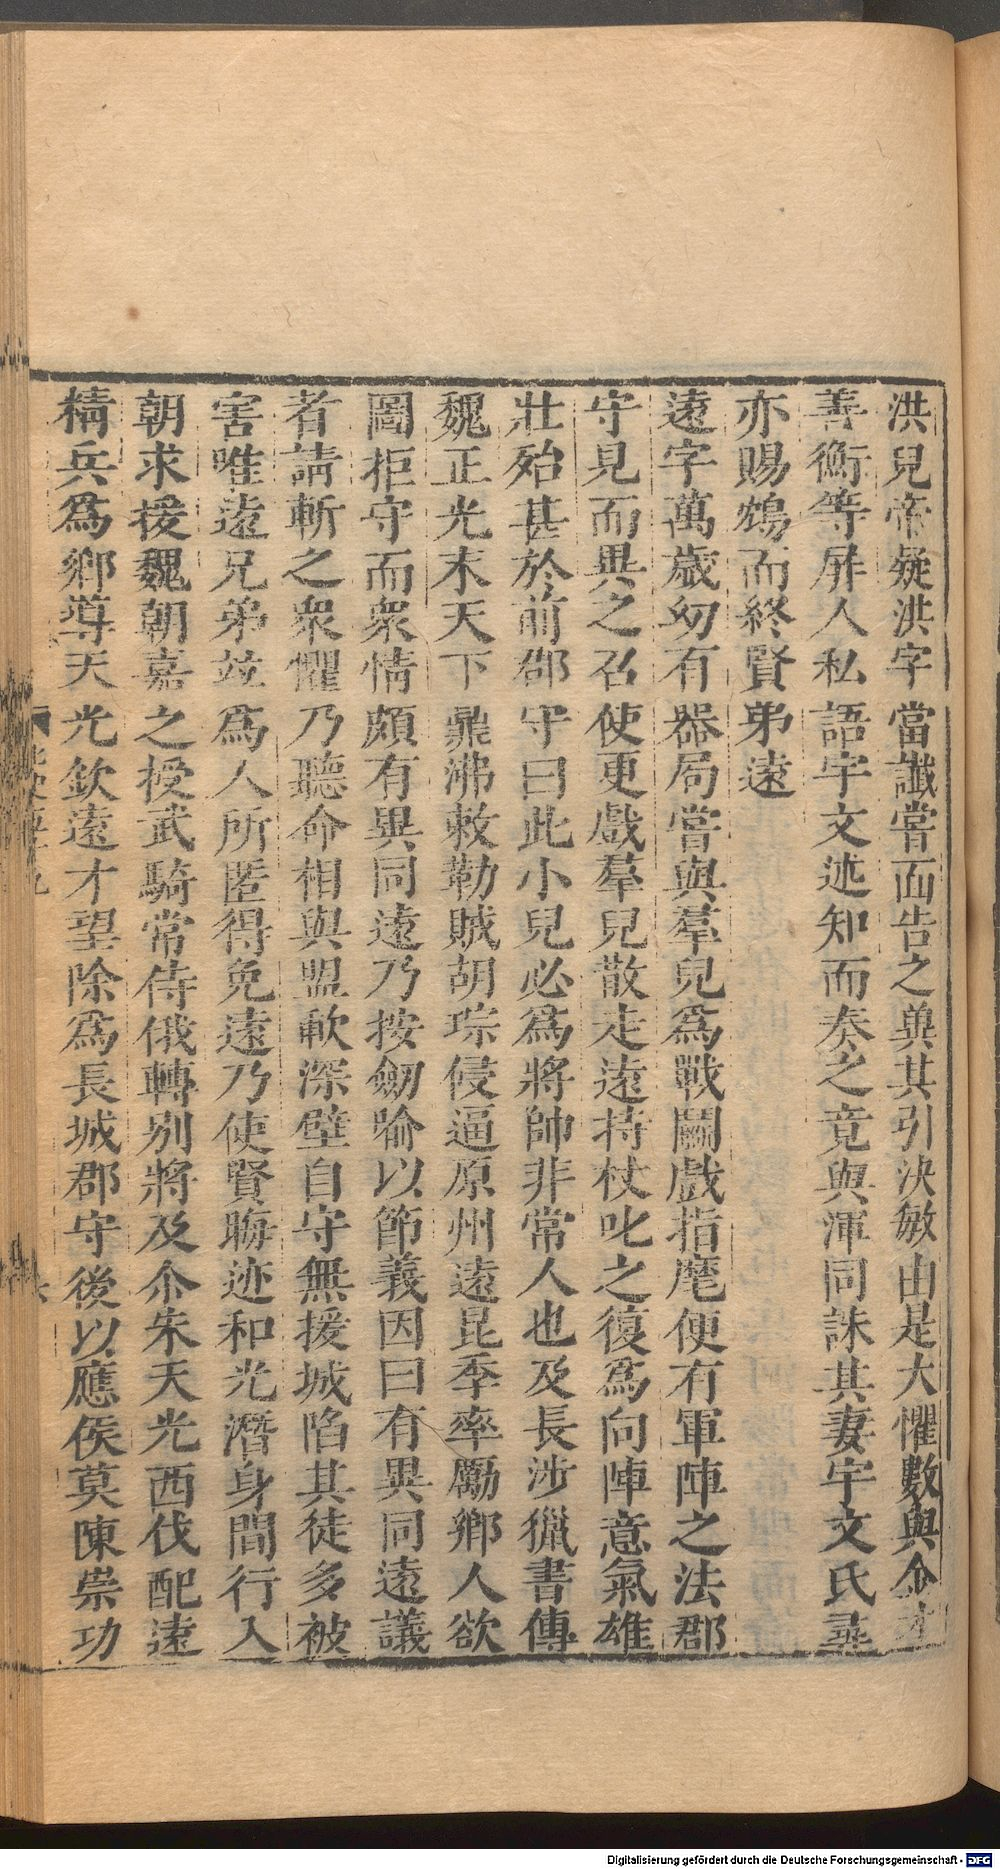 洪兒帝疑洪字當讖嘗面告之兾其引決敏由是大懼數與金才
善衡等屏人私語宇文述知而奏之竟與渾同誅其妻宇文氏尋
亦賜鴆而終賢弟遠
遠字萬歲幼有器局嘗與羣兒爲戰鬭戲指麾便有軍陣之法郡
守見而異之召使更戲羣兒散走遠持杖叱之復爲向陣意氣雄
壯殆甚於前郡守曰此小兒必爲將帥非常人也及長涉獵書傳
魏正光末天下鼎沸敕勒賊胡琮侵逼原州遠昆季率勵鄉人欲
圖拒守而衆情頗有異同遠乃按劒喻以節義因曰有異同遠議
者請斬之衆懼乃聽命相與盟歃深壁自守無援城陷其徒多被
害唯遠兄弟竝爲人所匿得免遠乃使賢晦迹和光潛身間行入
朝求援魏朝嘉之授武騎常侍俄轉別將及尒朱天光西伐配遠
精兵爲鄉導天光欽遠才望除爲長城郡守後以應侯莫陳崇功
Digitalisierung gefördert durch die Deutsche Forschungsgemeinschaft - DFG